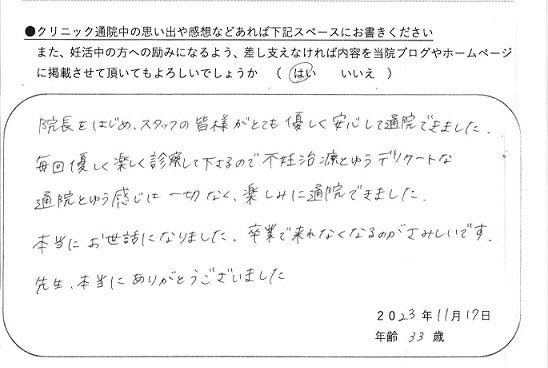 ●クリニック通院中の思い出や感想などあれば下記スペースにお書きください
また、妊活中の方への励みになるよう、差し支えなければ内容を当院ブログやホームページ
に掲載させて頂いてもよろしいでしょうか （ はい いいえ ）
院長をはじめ、スタッフの皆様がとても優しく安心して通院できました.
毎回優しく楽しく診察して下さるので不妊治療とゆうデリケートな
通院とゆう感じは一切なく、楽しみに通院できました.
本当にお世話になりました、卒業で来れなくなるのがさみしいです.
先生、本当にありがとうございました
2023年11月17日
年齢 33 歳